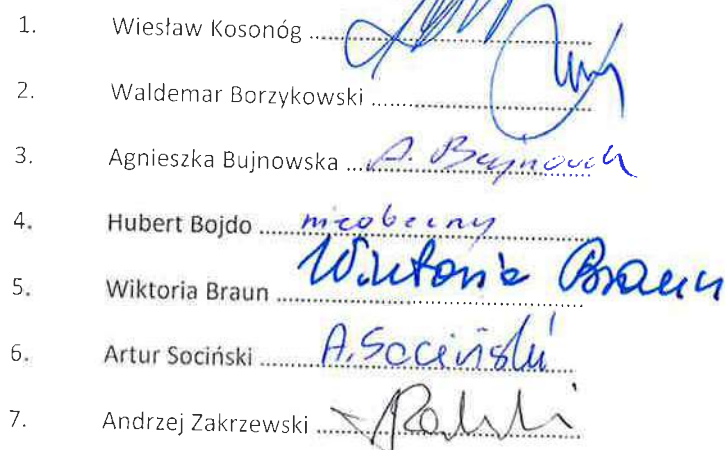 1. Wiesław Kosonóg ........................
2. Waldemar Borzykowski ........................
3. Agnieszka Bujnowska ........................ A. Bujnowsk
4. Hubert Bojdo ........................ nieobecny
5. Wiktoria Braun ........................ Wiktoria Braun
6. Artur Sociński ........................ A. Sociński
7. Andrzej Zakrzewski ........................